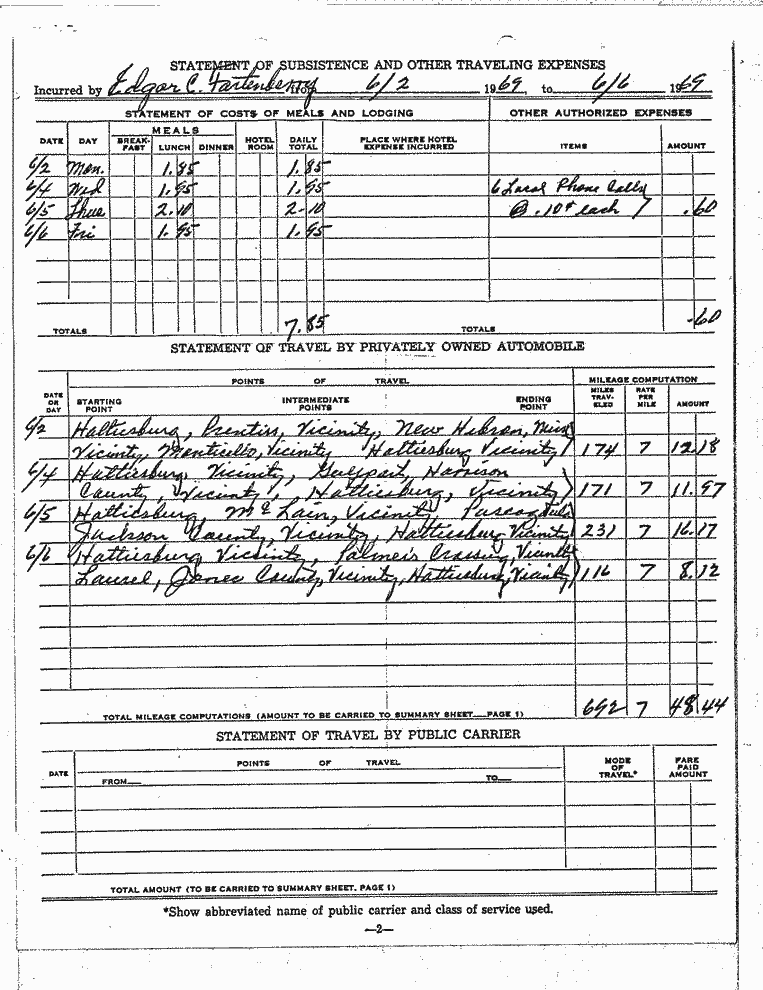 STATEMENT OF SUBSISTENCE AND OTHER TRAVELING EXPENSES
Incurred by Edgar C. Fortenberry 6/2 1969 to 6/6 1969
STATEMENT OF COSTS OF MEALS AND LODGING OTHER AUTHORIZED EXPENSES
MEALS
DATE DAY BREAK-FAST LUNCH DINNER HOTEL ROOM DAILY TOTAL PLACE WHERE HOTEL EXPENSE INCURRED ITEMS AMOUNT
6/2 Mon. 1.85 1.85
6/4 Wed 1.95 1.95 6 Local Phone Calls
6/5 Thur 2.10 2.10 @ .10¢ each .60
6/6 Fri 1.95 1.95
TOTALS 7.85 TOTALS .60
STATEMENT OF TRAVEL BY PRIVATELY OWNED AUTOMOBILE
POINTS OF TRAVEL MILEAGE COMPUTATION
DATE OR DAY STARTING POINT INTERMEDIATE POINTS ENDING POINT MILES TRAV-ELED RATE PER MILE AMOUNT
6/2 Hattiesburg, Prentiss, Vicinity, New Hebron, Miss
Vicinity, Monticello, Vicinity Hattiesburg Vicinity) 174 7 12.18
6/4 Hattiesburg, Vicinity, Gulfport, Harrison
County, Vicinity, Hattiesburg, Vicinity) 171 7 11.97
6/5 Hattiesburg, McLain, Vicinity, Pascagoula
Jackson County, Vicinity, Hattiesburg Vicinity 231 7 16.17
6/6 Hattiesburg Vicinity, Palmers Crossing, Vicinity
Laurel, Jones County, Vicinity, Hattiesburg, Vicinity) 116 7 8.12
TOTAL MILEAGE COMPUTATIONS (AMOUNT TO BE CARRIED TO SUMMARY SHEET—PAGE 1) 692 7 48.44
STATEMENT OF TRAVEL BY PUBLIC CARRIER
DATE POINTS OF TRAVEL MODE OF TRAVEL* FARE PAID AMOUNT
FROM— TO—
TOTAL AMOUNT (TO BE CARRIED TO SUMMARY SHEET. PAGE 1)
*Show abbreviated name of public carrier and class of service used.
—2—